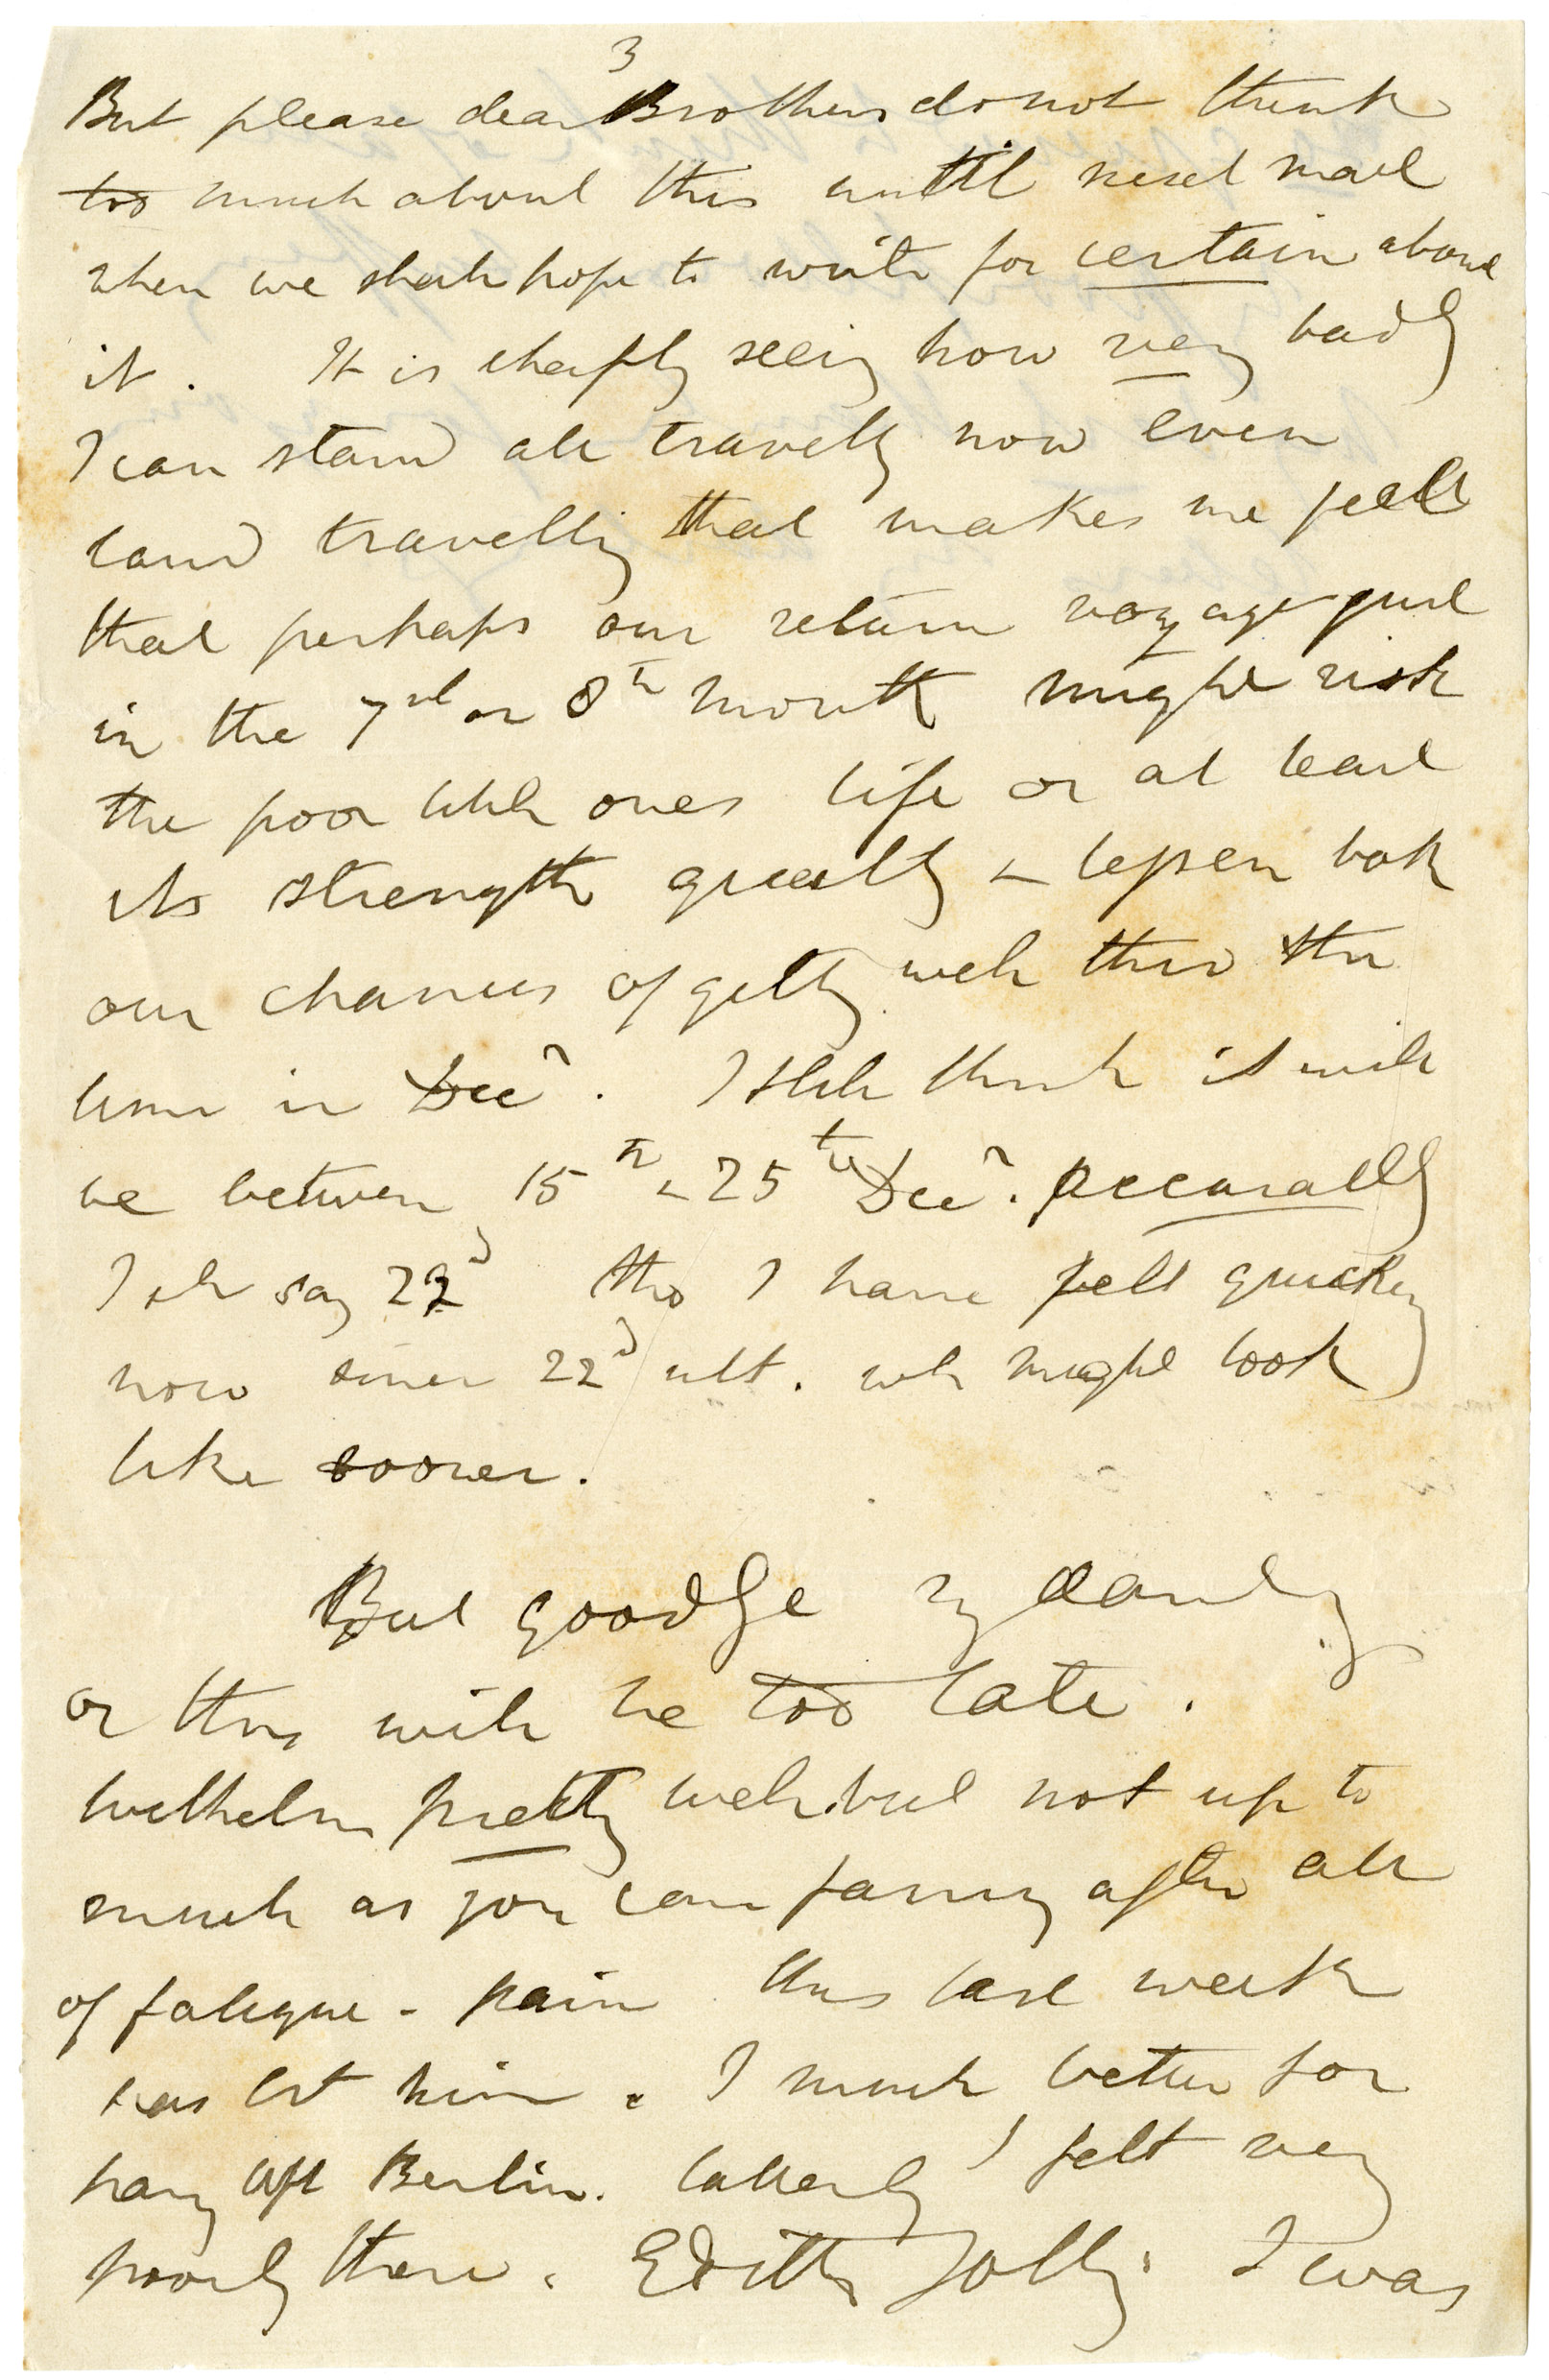 3
But please dear Brothers do not think
too much about this until next mail
when we shall hope to write for certain about
it. It is chiefly seeing how very badly
I can stand all travellg now even
land travelling that makes me feel
that perhaps our return voyage just
in the 7th or 8th month might risk
the poor little ones life or at least
its strength greatly & lessen both
our chances of gettg well thro the
time in Decr. I still think it will
be between 15th & 25th Decr. accurately
I sh say 22d tho I have felt quickeng
now since 22d ult. wh might look
like sooner.
But goodbye
or this will be too late.
Wilhelm pretty well but not up to
much as you can fancy after all
of fatigue & pain this last week
has cost him. I much better for
havg left Berlin. latterly I felt very
poorly there. Edith jolly. I was